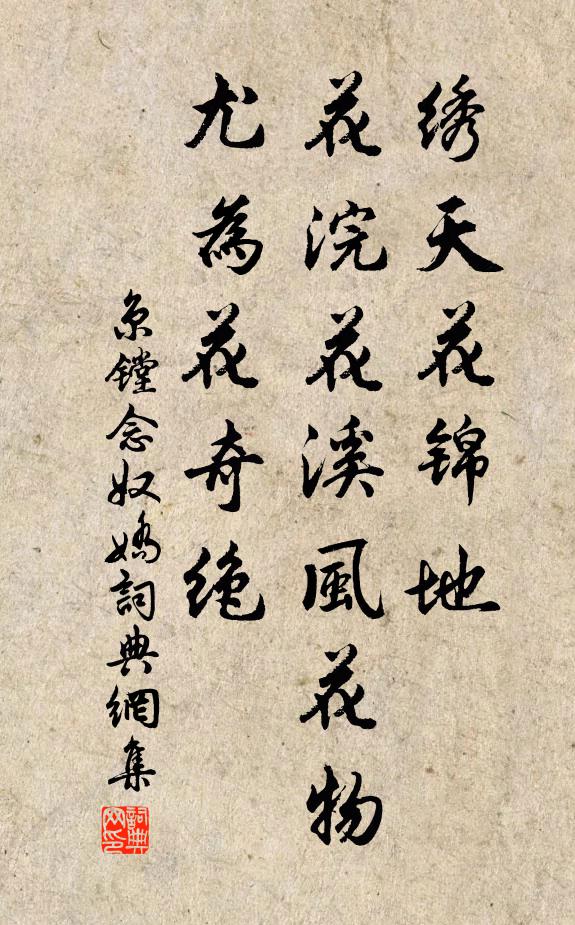 绣天花锦地
花浣花溪風花物
尤為花奇绝
京镗念奴嬌詞典網集
詞典
网印